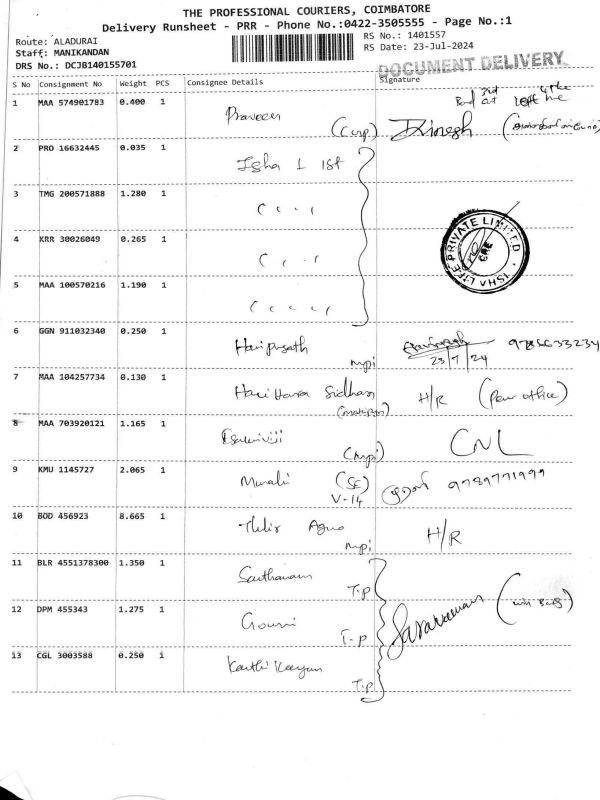 THE PROFESSIONAL COURIERS, COIMBATORE
Delivery Runsheet - PRR - Phone No.:0422-3505555 - Page No.:1
Route: ALADURAI
RS No.: 1401557
Staff: MANIKANDAN
RS Date: 23-Jul-2024
DRS No.: DCJB140155701
DOCUMENT DELIVERY
S No Consignment No Weight PCS Consignee Details Signature
1 MAA 574901783 0.400 1 Praveen (Corp) Dinesh
2 PRO 16632445 0.035 1 Isha L 1st
3 TMG 200571888 1.280 1 " " " "
4 KRR 30026049 0.265 1 " " " "
5 MAA 100570216 1.190 1 " " " " "
ISHA LIFE PRIVATE LIMITED
6 GGN 911032340 0.250 1 Hariprasath mpi 23/7/24
7 MAA 104257734 0.130 1 Hari Hara Sidhan H/R
8 MAA 703920121 1.165 1 (mpi) CNL
9 KMU 1145727 2.065 1 Murali (SC) V-14 9789771999
10 BOD 456923 8.665 1 Agro mpi H/R
11 BLR 4551378300 1.350 1 Santhanam T.p
12 DPM 455343 1.275 1 Gowri T.p Saravanan
13 CGL 3003588 0.250 1 T.p